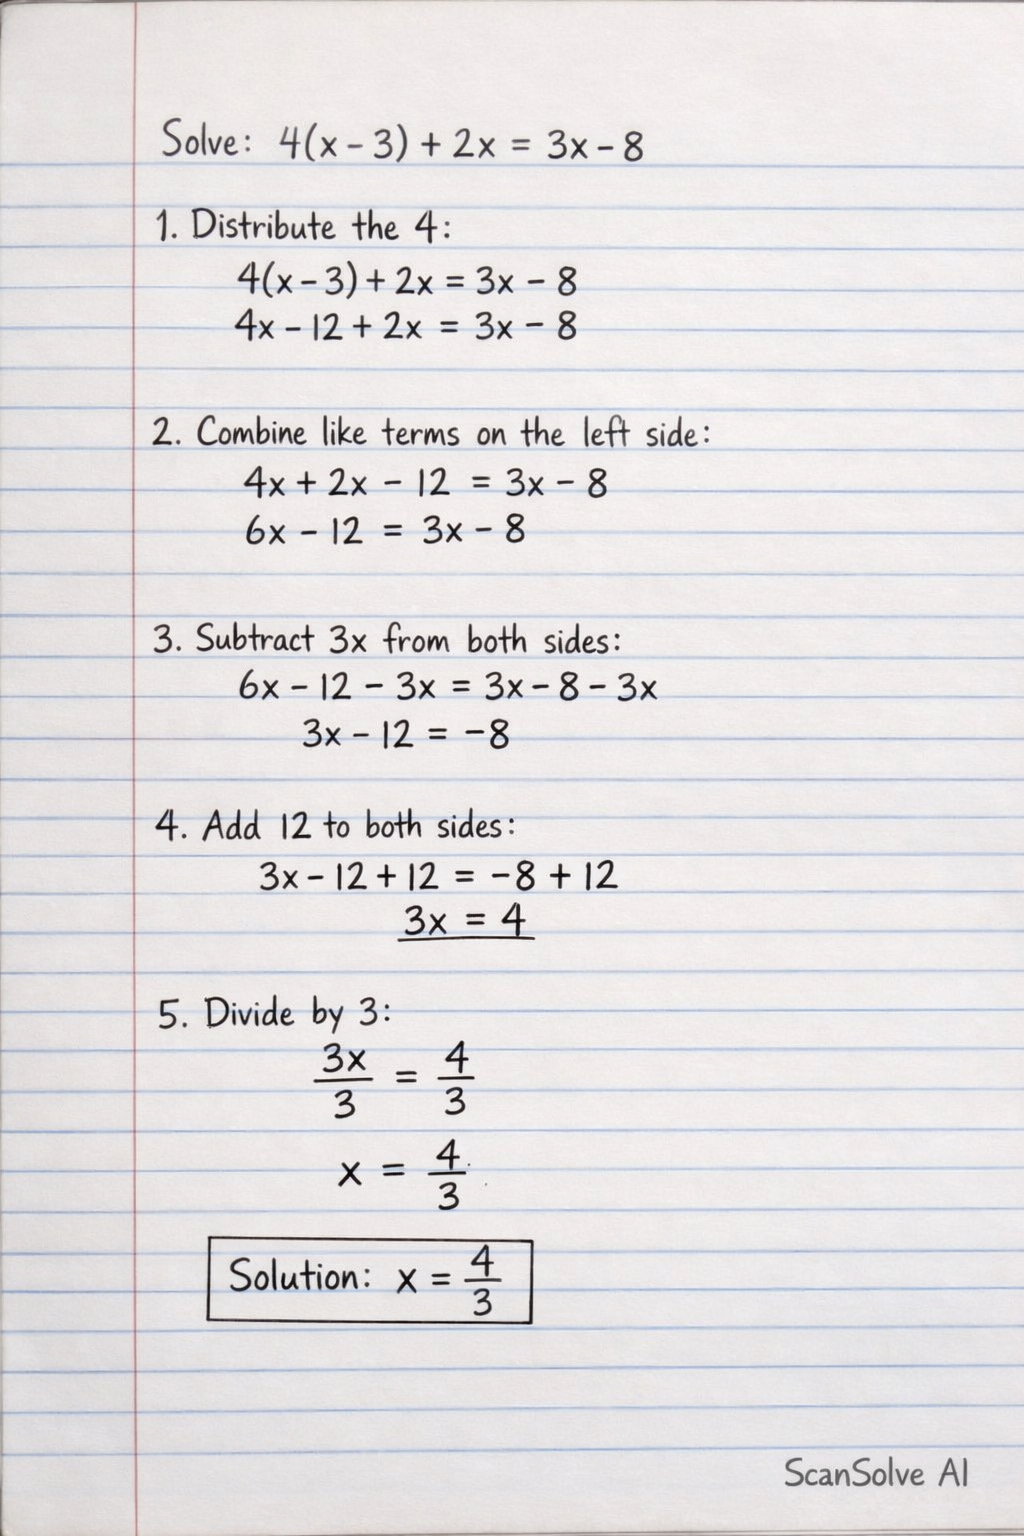 Solve: 4(x - 3) + 2x = 3x - 8
1. Distribute the 4:
4(x - 3) + 2x = 3x - 8
4x - 12 + 2x = 3x - 8
2. Combine like terms on the left side:
4x + 2x - 12 = 3x - 8
6x - 12 = 3x - 8
3. Subtract 3x from both sides:
6x - 12 - 3x = 3x - 8 - 3x
3x - 12 = -8
4. Add 12 to both sides:
3x - 12 + 12 = -8 + 12
3x = 4
5. Divide by 3:
3x/3 = 4/3
x = 4/3
Solution: x = 4/3
ScanSolve AI